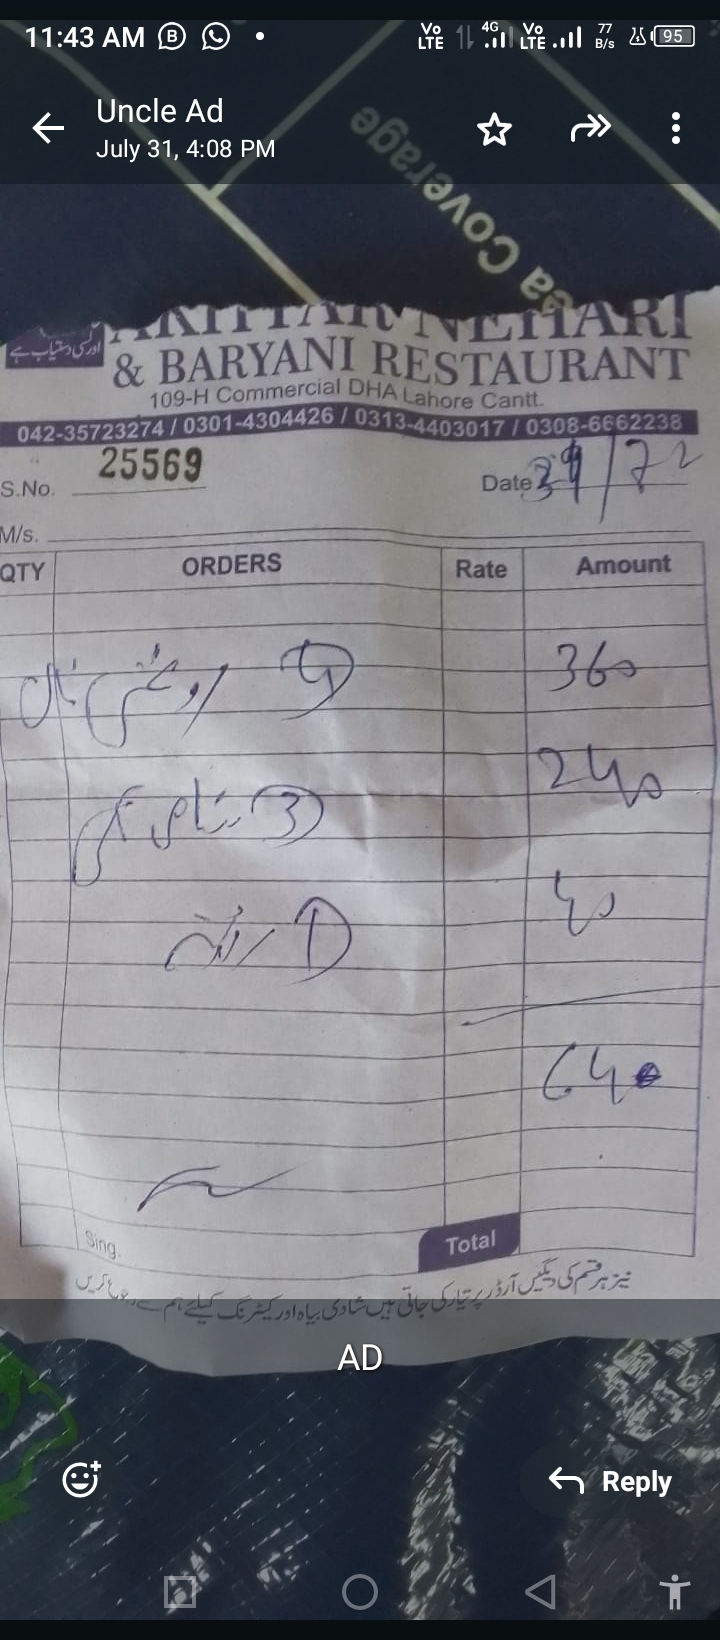 11:43 AM
Vo LTE 4G Vo LTE 77 B/s 95
Uncle Ad
July 31, 4:08 PM
ea Coverage
اور کسی دستیاب ہے
AKHTAR NEHARI
& BARYANI RESTAURANT
109-H Commercial DHA Lahore Cantt.
042-35723274 / 0301-4304426 / 0313-4403017 / 0308-6662238
S.No. 25569 Date
M/s.
QTY ORDERS Rate Amount
روغنی نان 360
3 240
1 رائتہ 40
640
Sing. Total
نیز ہر قسم کی دیگیں آرڈر پر تیار کی جاتی ہیں شادی بیاہ اور کیٹرنگ کیلئے ہم سے رجوع کریں
AD
Reply